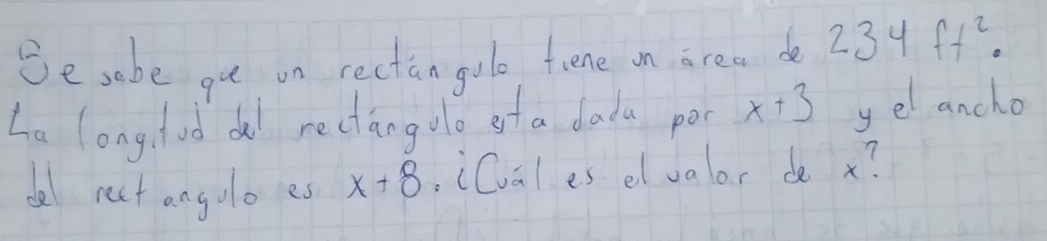 Se sabe que un rectángulo tiene un área de 234 ft².
La longitud del rectángulo esta dada por x+3 y el ancho
del rectangulo es x+8. ¿Cuál es el valor de x?